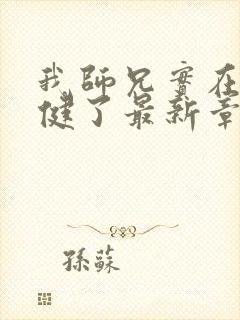 我師兄實在
健了最新章
孫蘇